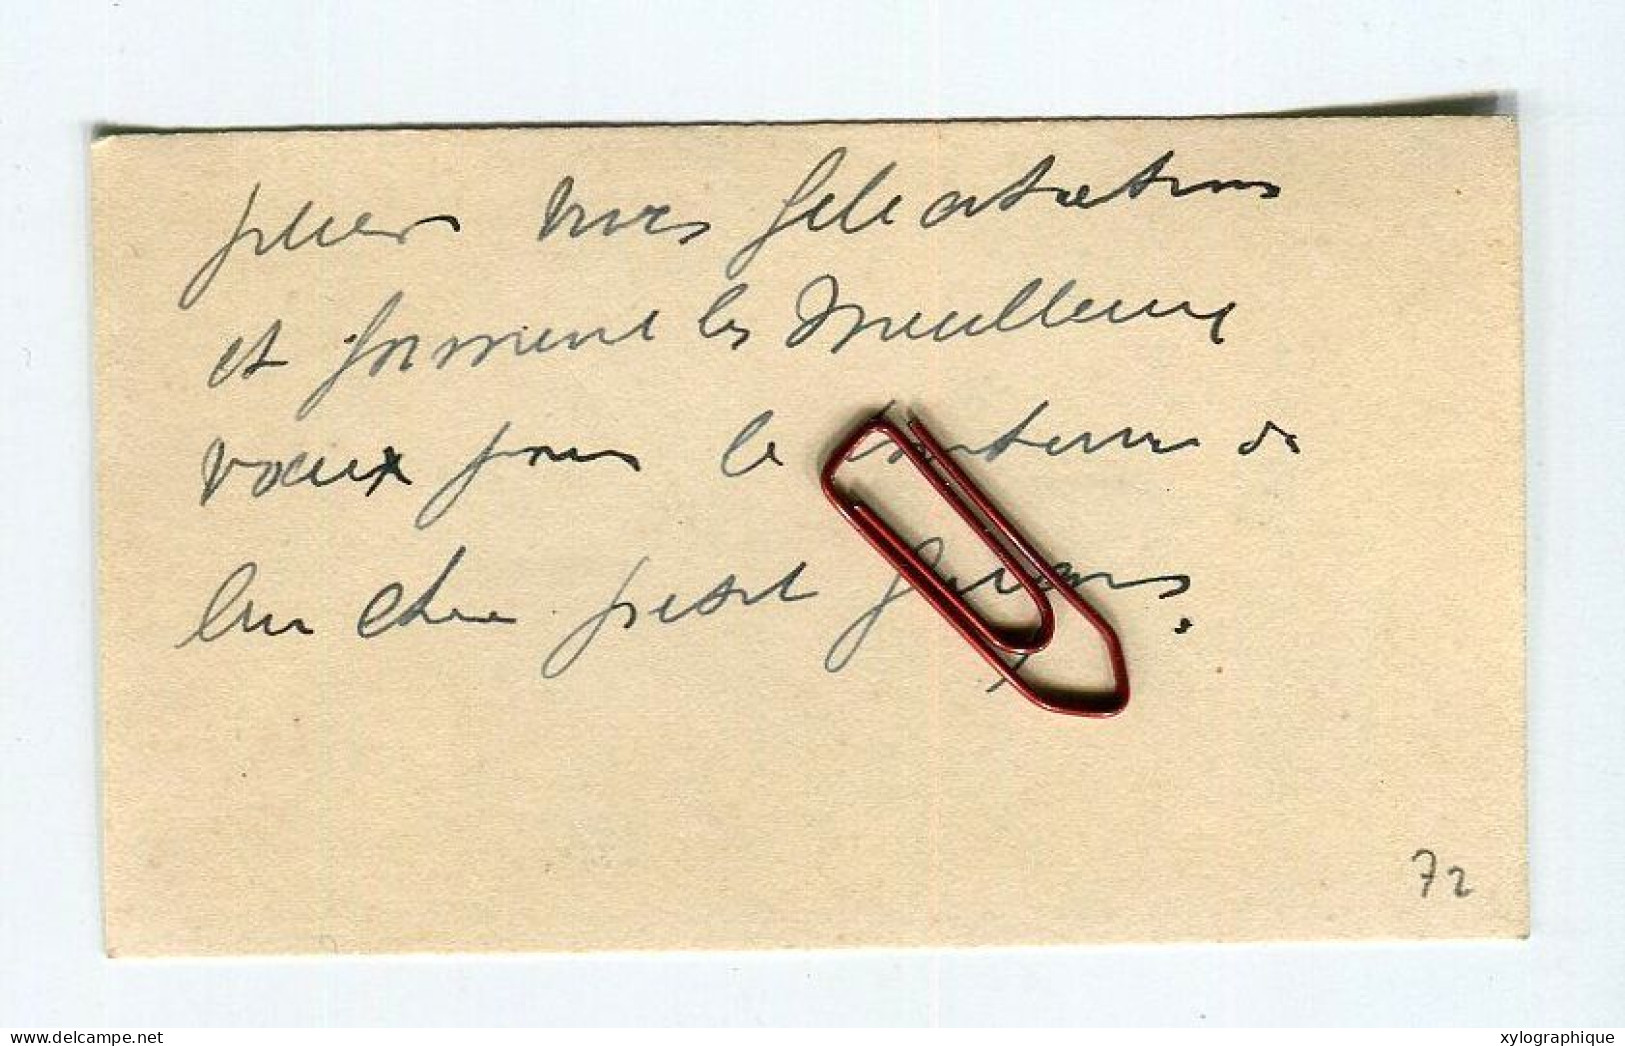 vives félicitations
et forment les meilleurs
voeux pour le bonheur de
leur cher petit
72
xylographique